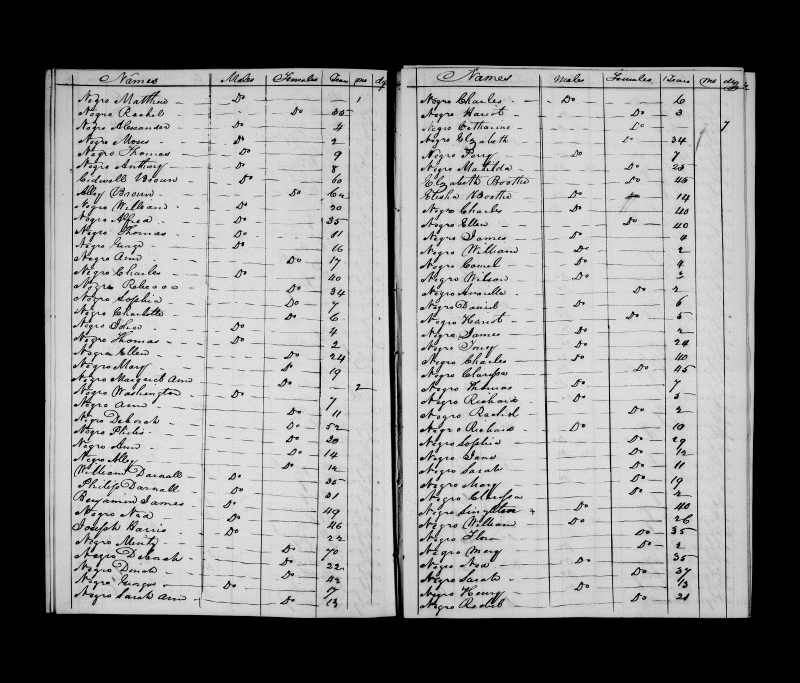 Names Males Females Years mo dys
Negro Matthew Do 1
Negro Rachel Do 35
Negro Alexander Do 4
Negro Moses Do 2
Negro Thomas Do 9
Negro Anthony Do 8
Brown Do 60
Alley Brown Do
Negro William Do 20
Negro Alfred Do 35
Negro Thomas Do 11
Negro George Do 16
Negro Ann Do 17
Negro Charles Do 40
Negro Rebecca Do 34
Negro Sophia Do 7
Negro Charlotte Do 6
Negro Do 4
Negro Thomas Do 2
Negro Ellen Do 24
Negro Mary Do 19
Negro Margaret Ann Do 2
Negro Washington Do 7
Negro Ann Do 11
Negro Deborah Do 52
Negro Philis Do 30
Negro Ann Do 14
Negro Alley Do 12
William Darnall Do 35
Philip Darnall Do 31
Benjamin James Do 49
Negro Ned Do 46
Joseph Harris Do 22
Negro Minty Do 70
Negro Deborah Do 22
Negro Dinah Do 43
Negro Do 17
Negro Sarah Ann Do 13
Names Males Females Years mo dys
Negro Charles Do 6
Negro Hariot Do 3
Negro Catharine Do 7
Negro Elizabeth Do 34
Negro Perry Do 7
Negro Matilda Do 25
Elizabeth Boothe Do 45
Elisha Boothe Do 14
Negro Charles Do 40
Negro Ellen Do 40
Negro James Do 4
Negro William Do 2
Negro Do 4
Negro Wilson Do 2
Negro Do 2
Negro Daniel Do 6
Negro Hariot Do 5
Negro James Do 2
Negro Do 24
Negro Charles Do 40
Negro Clarissa Do 45
Negro Thomas Do 7
Negro Richard Do 5
Negro Rachel Do 2
Negro Richard Do 10
Negro Sophia Do 29
Negro Jane Do 12
Negro Sarah Do 11
Negro Mary Do 19
Negro Clarissa Do 2
Negro Do 40
Negro William Do 26
Negro Flora Do 35
Negro Mary Do 2
Negro Ned Do 35
Negro Sarah Do 37
Negro Henry Do 13
Negro Rachel Do 21